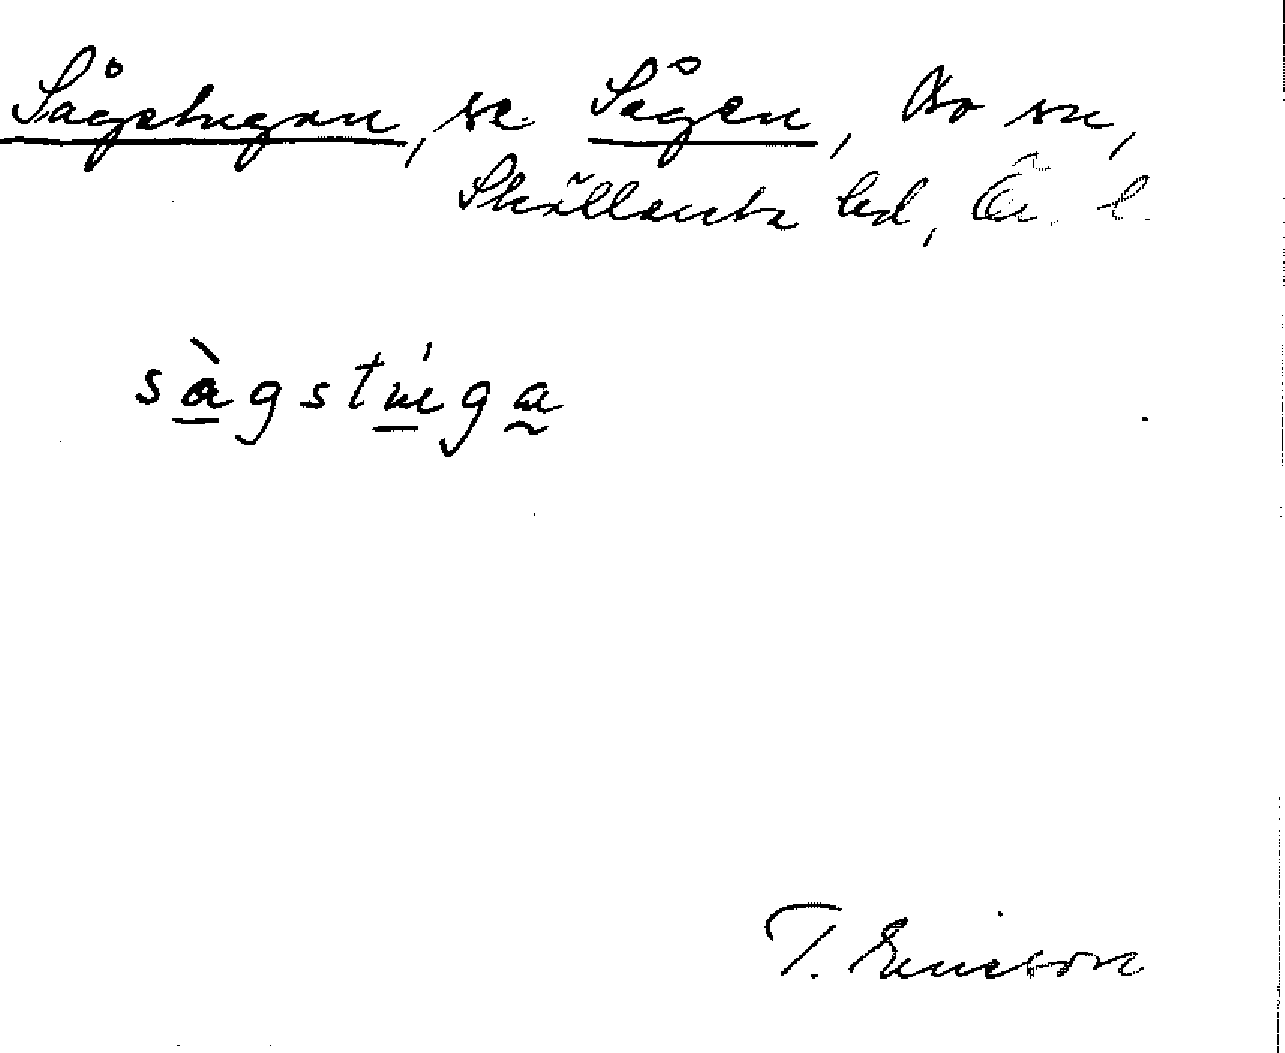 Sågstugan, se Sågen, Bo sn,
Sköllersta hd, Ör. l.
sàgstúga
T. Ericsson